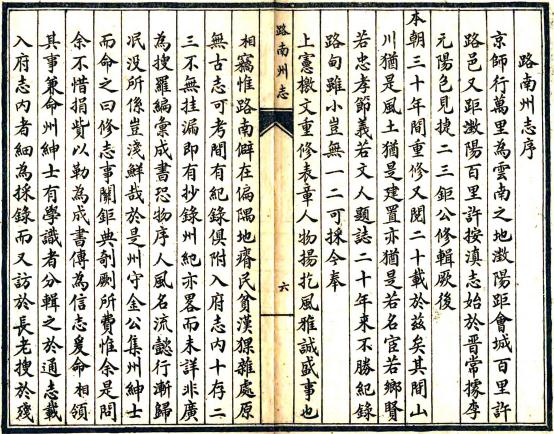 路南州志序
京師行萬里為雲南之地澂陽距會城百里許
路邑又距澂陽百里許按滇志始於晋常璩李
元陽邑見捷二三鉅公修輯厥後
本朝三十年間重修又閱二十載於茲矣其間山
川猶是風土猶是建置亦猶是若名宦若鄉賢
若忠孝節義若文人題誌二十年來不勝紀錄
路甸雖小豈無一二可採今奉
上憲檄文重修表章人物揚扢風雅誠盛事也
路南州志
六
相竊惟路南僻在偏隅地瘠民貧漢猓雜處原
無古志可考間有紀錄俱附入府志內十存二
三不無挂漏即有抄錄州紀亦畧而未詳非廣
為搜羅編彙成書恐物序人風名流懿行漸歸
泯没所係豈淺鮮哉於是州守金公集州紳士
而命之曰修志事關鉅典剞劂所費惟余是問
余不惜捐貲以勒為成書傳為信志爰命相領
其事兼命州紳士有學識者分輯之於通志載
入府志內者細為採錄而又訪於長老搜於殘